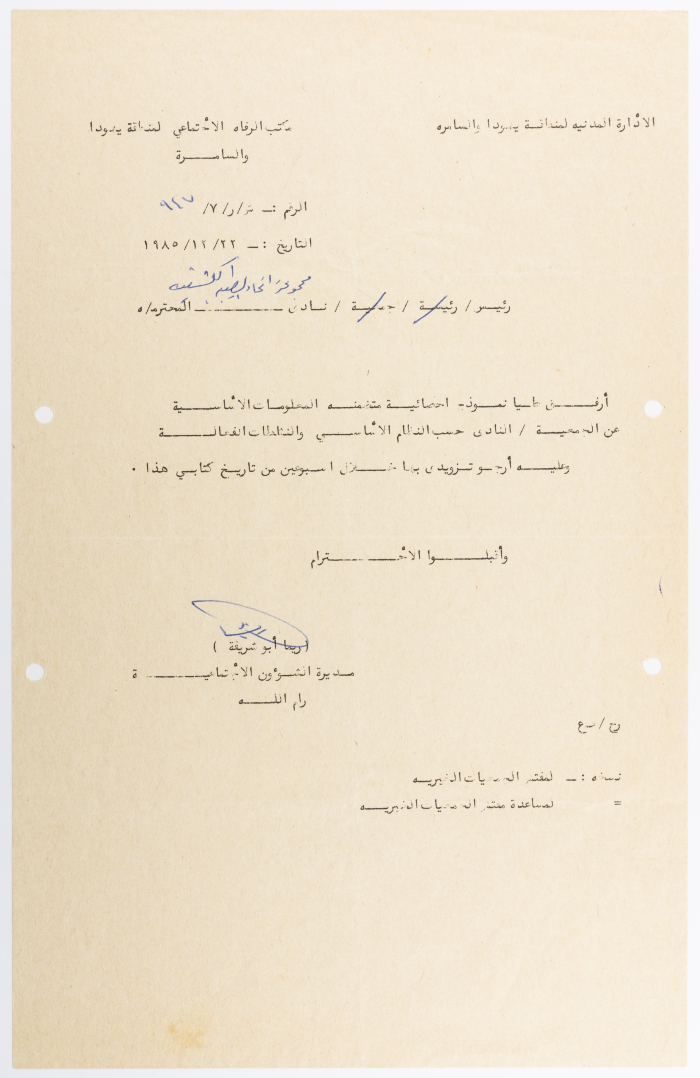 الادارة المدنيه لمنطقة يهودا والسامره
مكتب الرفاه الاجتماعي لمنطقة يهودا
والسامرة
الرقم :ـ ش/ر/٧/ ٩٤٧
التاريخ :ـ ١٩٨٥/١٢/٢٢
مجموعة اتحاد الكشفيه
رئيس/ رئيسة / جمعية / نادى المحترم/ه
أرفق طيا نموذج احصائية متضمنه المعلومات الاساسية
عن الجمعية / النادى حسب النظام الاساسي والنشاطات الفعالة
وعليه أرجو تزويدى بها خلال اسبوعين من تاريخ كتابي هذا .
وأقبلوا الاحترام
(ريما أبو شريفة )
مديرة الشوؤن الاجتماعية
رام الله
نسخه :ـ لمفتش الجمعيات الخيريه
= لمساعدة مفتش الجمعيات الخيريه